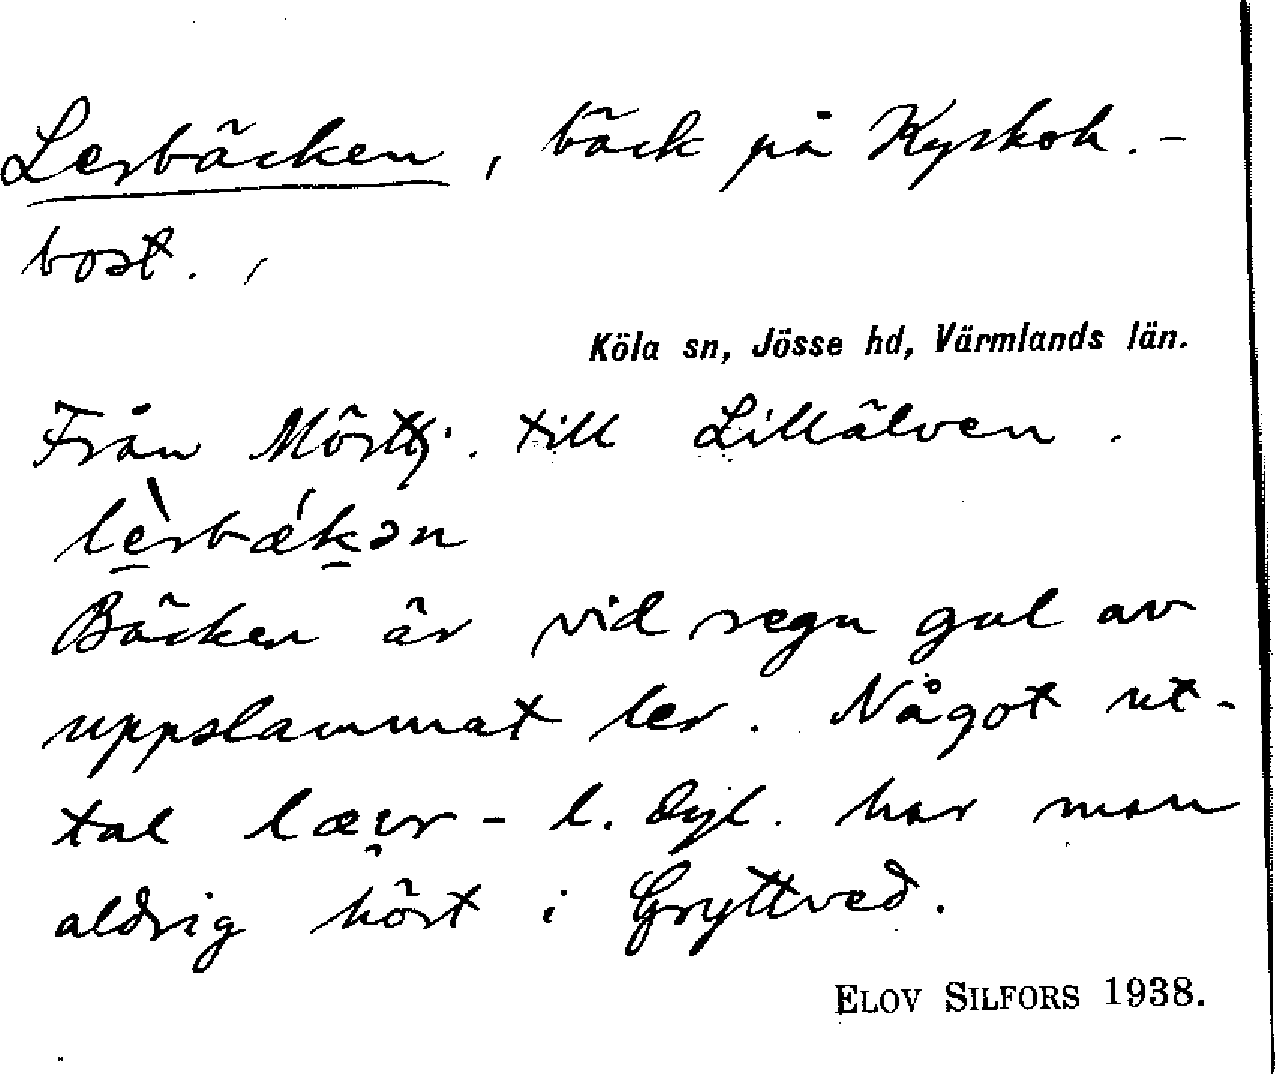 Lerbäcken, bäck på Kyrkoh.-
bost.,
Köla sn, Jösse hd, Värmlands län.
Från Mörttj. till Lillälven.
lèrbǽkən
Bäcken är vid regn gul av
uppslammat ler. Något ut-
tal læır- l. dyl. har man
aldrig hört i Gryttved.
ELOV SILFORS 1938.